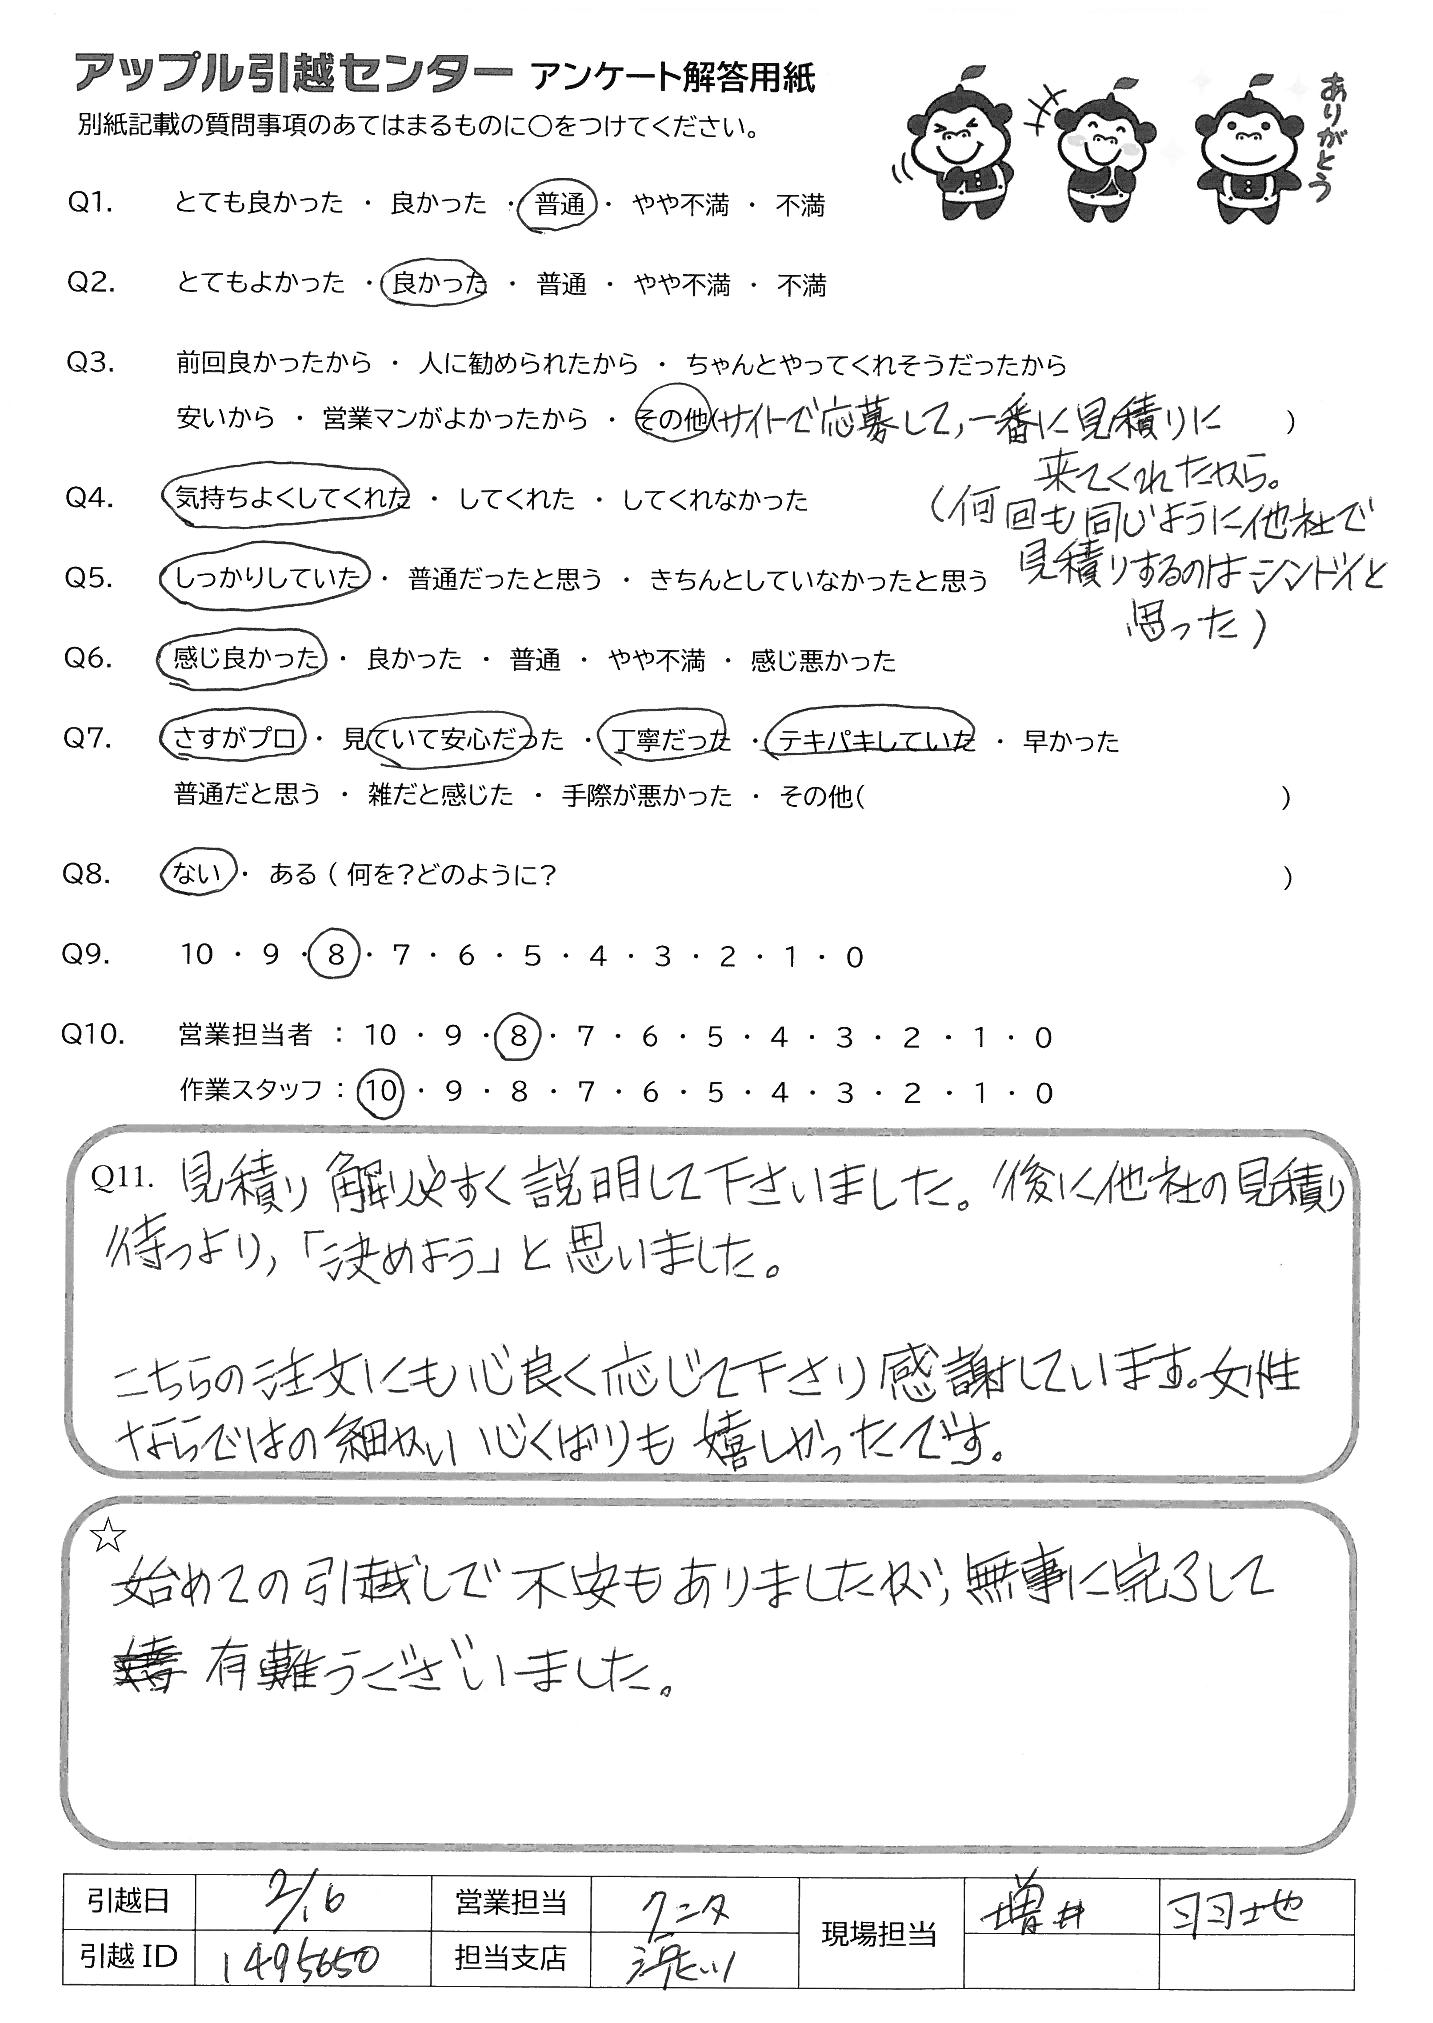 アップル引越センター アンケート解答用紙
ありがとう
別紙記載の質問事項のあてはまるものに○をつけてください。
Q1. とても良かった ・ 良かった ・ 普通 ・ やや不満 ・ 不満
Q2. とてもよかった ・ 良かった ・ 普通 ・ やや不満 ・ 不満
Q3. 前回良かったから ・ 人に勧められたから ・ ちゃんとやってくれそうだったから
安いから ・ 営業マンがよかったから ・ その他(サイトで応募して、一番に見積りに )
来てくれたから。
(何回も同じように他社で
見積りするのはシンドイと
思った)
Q4. 気持ちよくしてくれた ・ してくれた ・ してくれなかった
Q5. しっかりしていた ・ 普通だったと思う ・ きちんとしていなかったと思う
Q6. 感じ良かった ・ 良かった ・ 普通 ・ やや不満 ・ 感じ悪かった
Q7. さすがプロ ・ 見ていて安心だった ・ 丁寧だった ・ テキパキしていた ・ 早かった
普通だと思う ・ 雑だと感じた ・ 手際が悪かった ・ その他( )
Q8. ない ・ ある ( 何を？どのように？ )
Q9. 10 ・ 9 ・ 8 ・ 7 ・ 6 ・ 5 ・ 4 ・ 3 ・ 2 ・ 1 ・ 0
Q10. 営業担当者 ： 10 ・ 9 ・ 8 ・ 7 ・ 6 ・ 5 ・ 4 ・ 3 ・ 2 ・ 1 ・ 0
作業スタッフ ： 10 ・ 9 ・ 8 ・ 7 ・ 6 ・ 5 ・ 4 ・ 3 ・ 2 ・ 1 ・ 0
Q11. 見積り解りやすく説明して下さいました。後に他社の見積り
待つより、「決めよう」と思いました。
こちらの注文にも心良く応じて下さり感謝しています。女性
ならではの細かい心くばりも嬉しかったです。
☆
始めての引越しで不安もありましたが、無事に完了して
有難うございました。
引越日 2/16 営業担当 クニタ 現場担当 増井 羽地
引越ID 1495650 担当支店 淀川